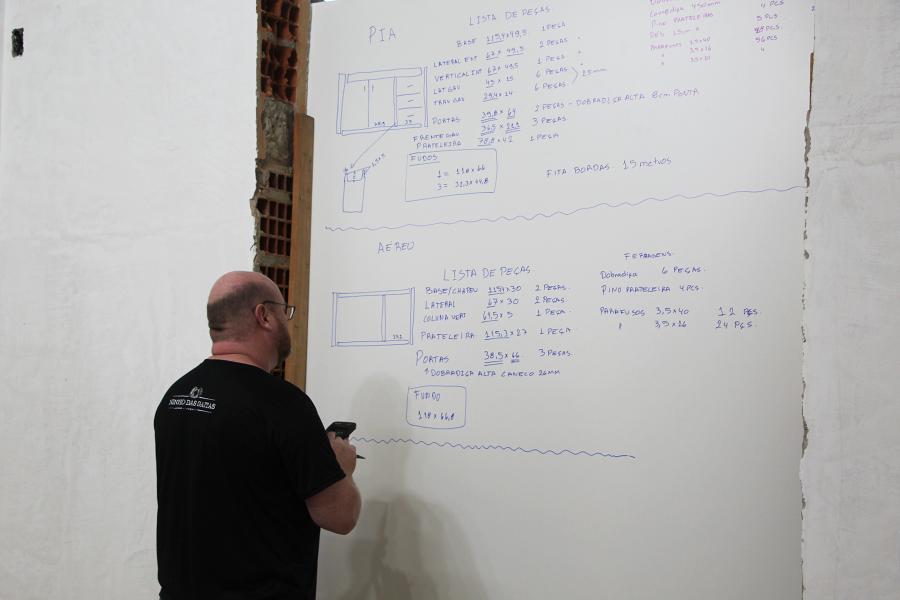 PIA
LISTA DE PEÇAS.
BASE 115,4 x 49,5 1 PEÇA
LATERAL EXT 67 x 49,5 2 PEÇAS
VERTICAL INT 67 x 49,5 1 PEÇA
LAT GAV 45 x 15 6 PEÇAS
TRAV GAV 29,4 x 14 6 PEÇAS
25mm
PORTAS 39,8 x 64 2 PEÇAS - DOBRADIÇA ALTA 8cm PONTA
FRENTE GAV 36,5 x 21,1 3 PEÇAS.
PRATELEIRA 78,8 x 42 1 PEÇA
FUDOS
1 = 118 x 66
3 = 31,3 x 44,8
FITA BORDAS. 15 metros
Corrediça 450mm
4 PCS
PINO PRATELEIRAS
PARAFUSOS 3,5x40
3,5x16
56 PCS
AÉREO
LISTA DE PEÇAS
BASE/CHAPEU 115,4 x 30 2 PEÇAS.
LATERAL 67 x 30 2 PEÇAS.
COLUNA VERT 63,5 x 5 1 PEÇA.
PRATELEIRA 115,3 x 27 1 PEÇA
PORTAS 38,5 x 66 3 PEÇAS.
↑ DOBRADIÇA ALTA CANECO 26MM
FUNDO
118 x 66,8
FERRAGENS.
Dobradiça 6 PEÇAS.
PINO PRATELEIRA 4 PCS.
PARAFUSOS 3,5 x 40 12 PÇS.
" 3,5 x 16 24 PÇS.
NINHO DAS GAITAS